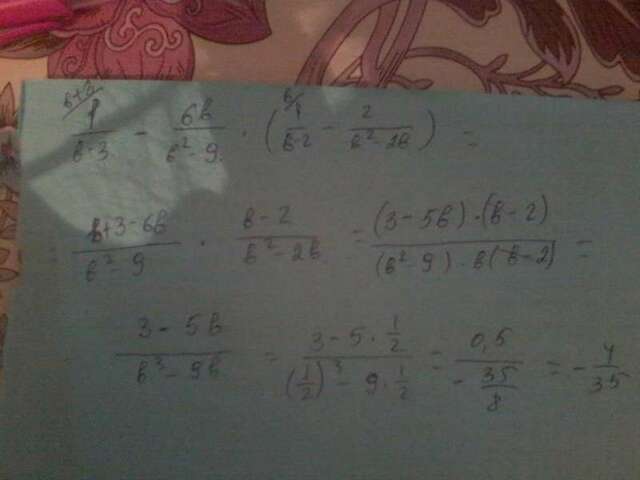 в+3/ в/
1/(в-3) - 6в/(в²-9) · (1/(в-2) - 2/(в²-2в)) =
(в+3-6в)/(в²-9) · (в-2)/(в²-2в) = ((3-5в)·(в-2))/((в²-9)·в(в-2)) =
(3-5в)/(в³-9в) = (3-5·1/2)/((1/2)³-9·1/2) = 0,5/(-35/8) = -4/35